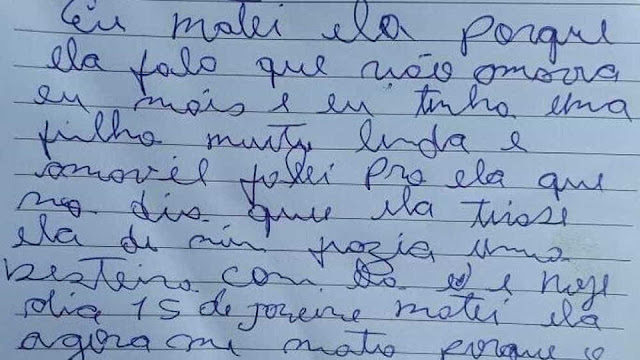 Eu matei ela porque
ela falo que não amava
eu mais e eu tinha uma
filha muito linda e
amavel falei pra ela que
no dia que ela tirase
ela de min fazia uma
besteira com e hoje
dia 15 de janeiro matei ela
agora me mato porque o